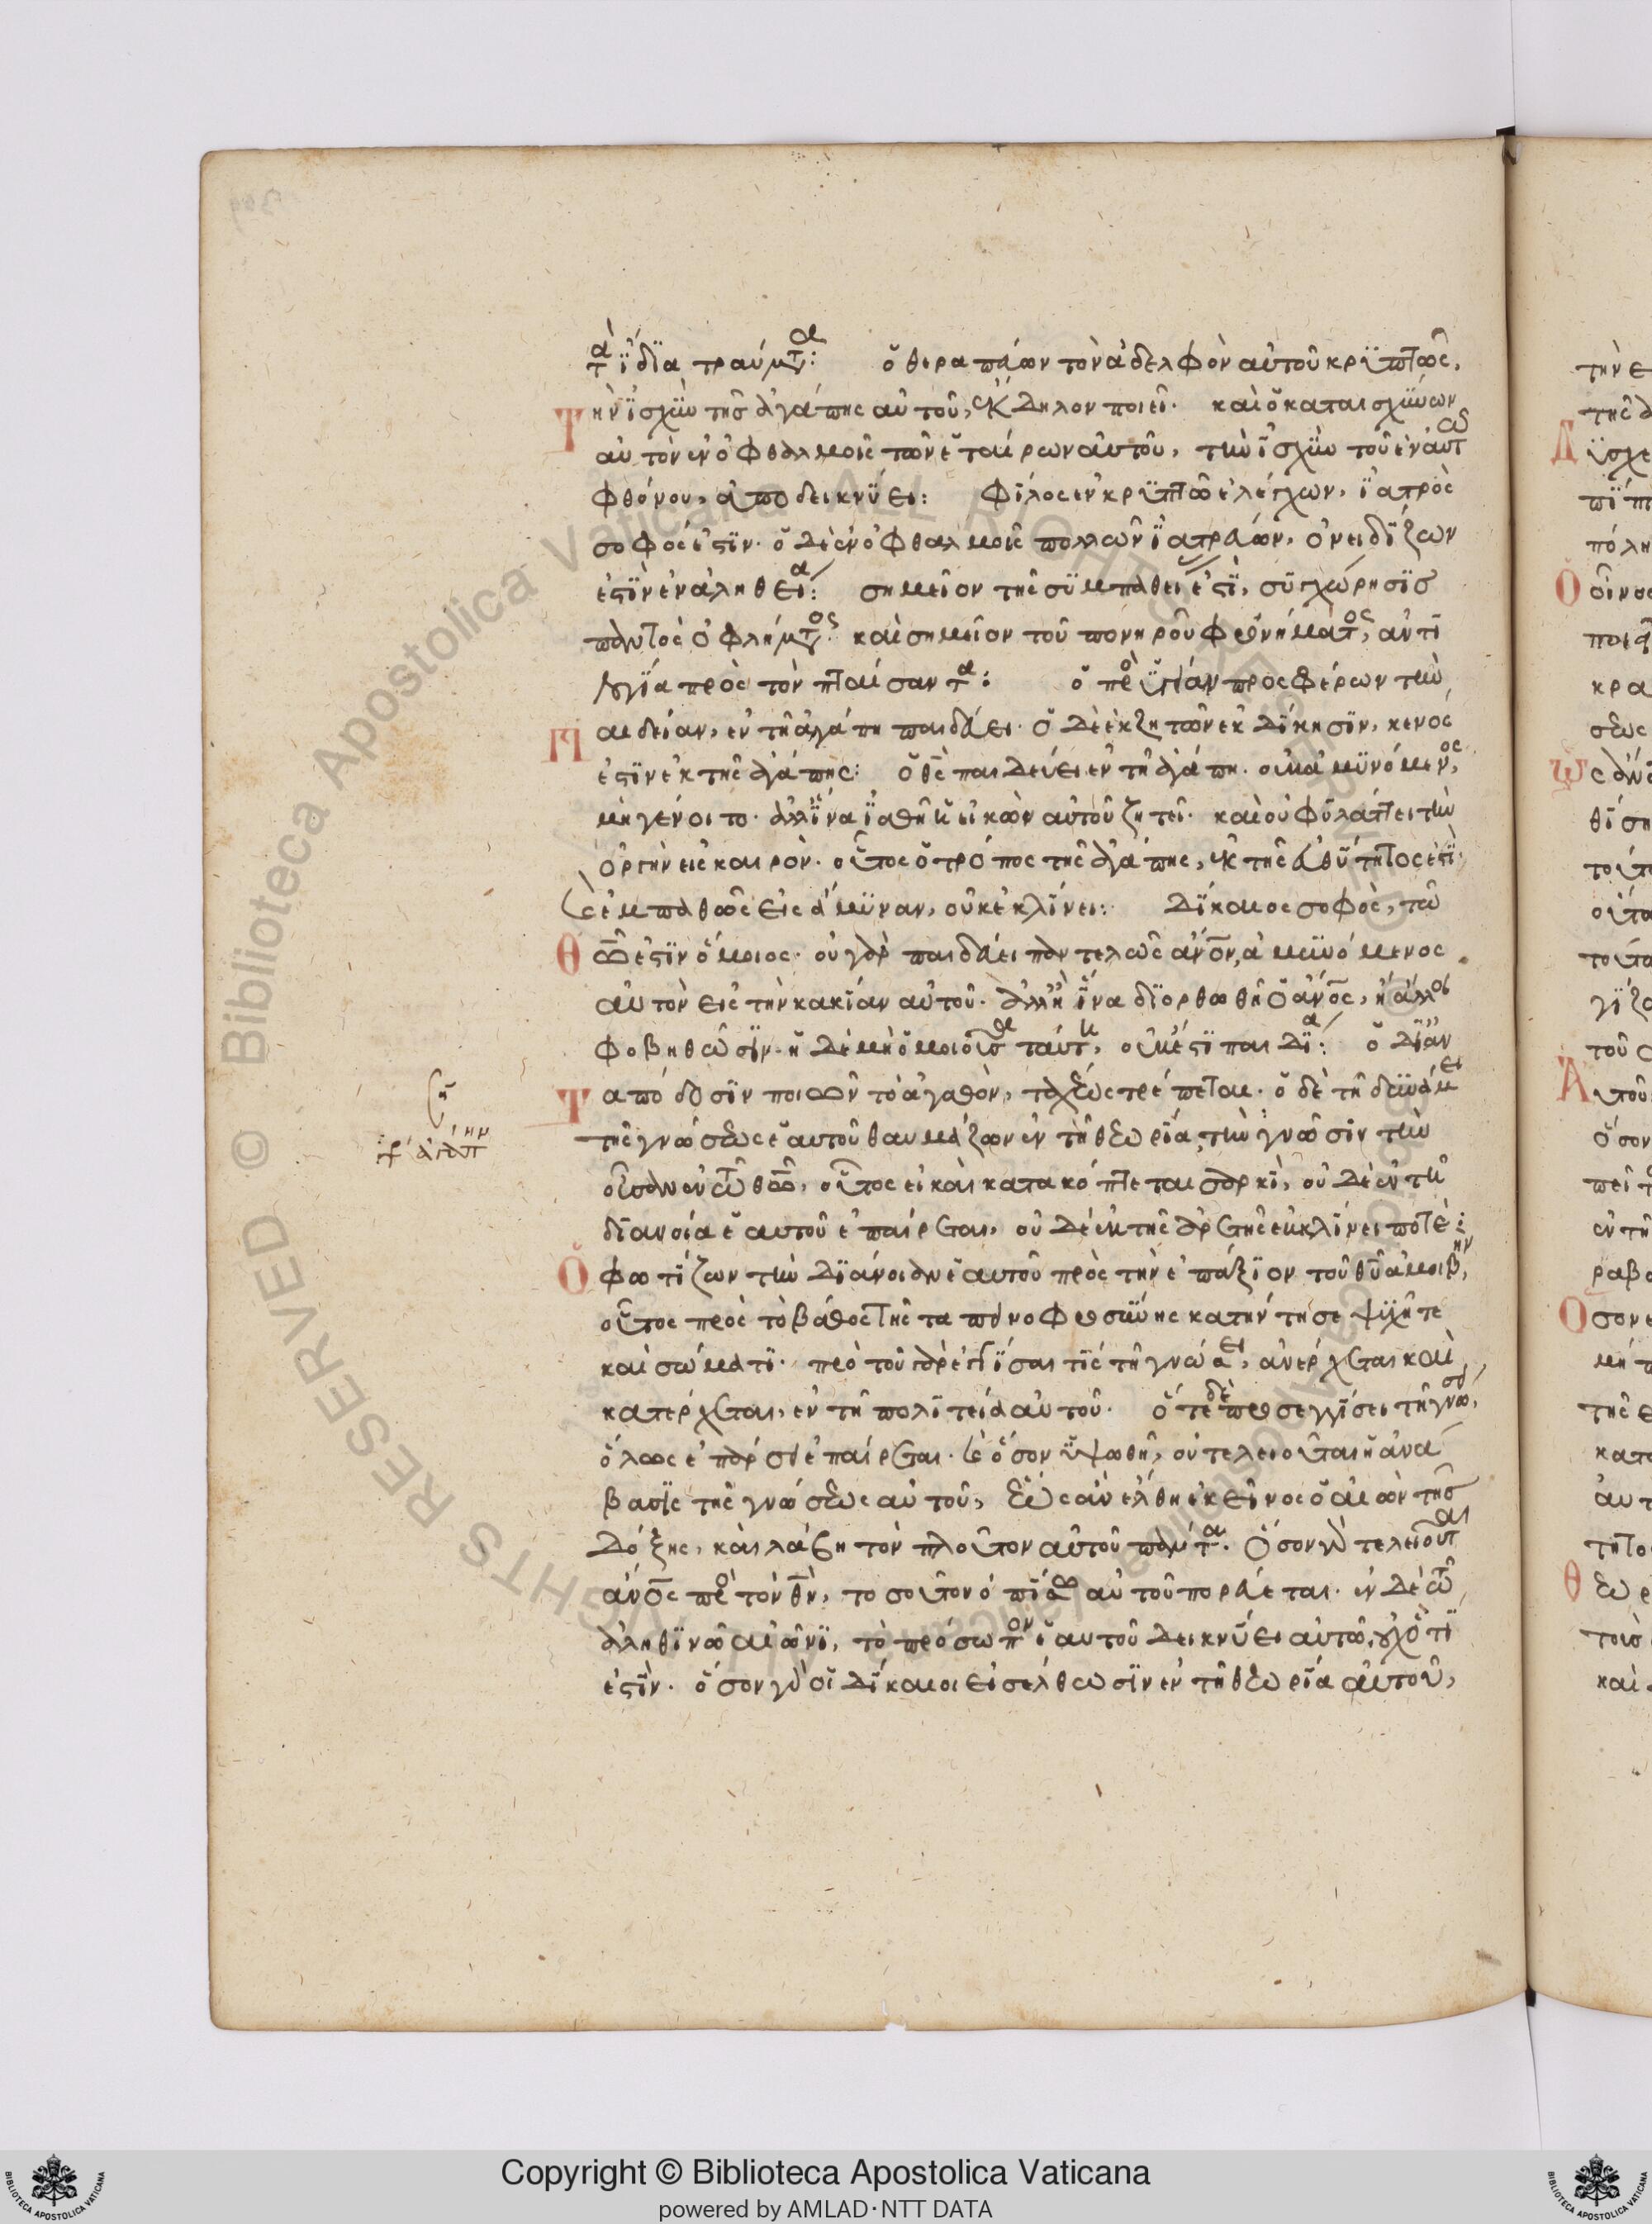 τὰ ἴδϊα τραύματα: ὁ θεραπεύων τὸν ἀδελφὸν αὐτοῦ κρϋπτῶς,
Τὴν ἰσχὺν τῆς ἀγάπης αὐτοῦ, ἔκδηλον ποιεῖ· καὶ ὁ καταισχύνων
αὐτὸν ἐν ὀφθαλμοῖς τῶν ἑταίρων αὐτοῦ, τὴν ἰσχὺν τοῦ ἐν αὐτῶ
φθόνου, ἀποδεικνύει: Φίλος ἐν κρϋπτῶ ἐλέγχων, ἰατρὸς
σοφός ἐστϊν· ὁ δὲ ἐν ὀφθαλμοῖς πολλῶν ἰατρεύων, ὀνειδίζων
ἐστϊν ἐν ἀληθεία: σημεῖον τῆς συμπαθείας ἐστὶ, συγχώρησϊς
παντὸς ὀφλήματος· καὶ σημεῖον τοῦ πονηροῦ φρονήματος, ἀντι
λογία πρὸς τὸν πταίσαντα: ὁ πρὸς ὑγείαν προσφέρων τὴν
Παιδείαν, ἐν τῆ ἀγάπη παιδεύει· ὁ δὲ ἐκζητῶν ἐκδίκησϊν, κενός
ἐστϊν ἐκ τῆς ἀγάπης: ὁ θς παιδεύει ἐν τῆ ἀγάπη. οὐκ ἀμϋνόμενος,
μὴ γένοιτο· ἀλλ' ἵνα ἰαθῆ ἡ εἰκὼν αὐτοῦ ζητεῖ· καὶ οὐ φυλάττει τὴν
ὀργὴν εἰς καιρὸν· οὗτος ὁ τρόπος τῆς ἀγάπης, ἐκ τῆς εὐθύτητος ἐστὶ·
καὶ ἐμπαθῶς εἰς ἄμυναν, οὐκ ἐκκλίνει: Δίκαιος σοφὸς, τῶ
Θεῶ ἐστϊν ὅμοιος· οὐ γὰρ παιδεύει παντελῶς ἄνον, ἀμυνόμενος
αὐτὸν εἰς τὴν κακίαν αὐτοῦ· ἀλλ' ἢ ἵνα διορθωθῆ ὁ ἄνος, ἢ ἄλλοι
φοβηθῶσϊν· ἡ δὲ μὴ ὁμοιοῖσα ταύτη, οὐκ ἔστϊ παιδεία: ὁ δι' ἀν
Ταπόδοσϊν ποιῶν τὸ ἀγαθὸν, ταχέως τρέπεται· ὁ δὲ τῆ δυνάμει
τῆς γνώσεως ἑαυτοῦ θαυμάζων ἐν τῆ θεωρία, τὴν γνῶσϊν τὴν
οὖσαν ἐν τῶ θεῶ, οὗτος εἰ καὶ κατακόπτεται σαρκὶ, οὐδὲ ἐν τῆ
διανοία ἑαυτοῦ ἐπαίρεται, οὐδὲ ἐκ τῆς ἀρετῆς ἐκκλίνει ποτέ:
Ὁ φωτίζων τὴν διάνοιαν ἑαυτοῦ πρὸς τὴν ἐπάξϊον τοῦ θυ ἀμοιβὴν,
οὗτος πρὸς τὸ βάθος τῆς ταπεινοφροσύνης κατήντησε ψυχῆ τε
καὶ σώματϊ· πρὸ τοῦ γὰρ ἐγγίσαι τις τῆ γνώσει, ἀνέρχεται καὶ
κατέρχεται, ἐν τῆ πολιτεία αὐτοῦ· ὅτε δὲ προσεγγίσει τῆ γνώσει,
ὅλως ἐπάρσει ἐπαίρεται· καὶ ὅσον ὑψωθῆ, οὐ τελειοῦται ἡ ἀνά
βασϊς τῆς γνώσεως αὐτοῦ, ἕως ἂν ἔλθη ἐκεῖνος ὁ αἰὼν τῆς
Δόξης, καὶ λάβη τὸν πλοῦτον αὐτοῦ πάντα. Ὅσον γὰρ τελειοῦται
ἄνος πρὸς τὸν θν, τοσοῦτον ὀπίσω αὐτοῦ πορεύεται· ἐν δὲ τῶ
ἀληθινῶ αἰῶνϊ, τὸ πρόσωπον ἑαυτοῦ δεικνύει αὐτῶ, οὐχ ὅτϊ
ἐστϊν· ὅσον γὰρ οἱ δίκαιοι εἰσέλθωσϊν ἐν τῆ θεωρία αὐτοῦ,
Copyright © Biblioteca Apostolica Vaticana
powered by AMLAD·NTT DATA